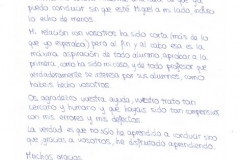 pueda conducir sin que esté Miguel a mi lado incluso
lo echo de menos.
Mi relación con vosotros ha sido corta (más de lo
que yo esperaba) pero al fin y al cabo esa es la
máxima aspiración de todo alumno, aprobar a la
primera, como ha sido mi caso, y de todo profesor que
verdaderamente se interesa por sus alumnos, como
habéis hecho vosotros.
Os agradezco vuestra ayuda, vuestro trato tan
cercano y humano y que hayais sido tan comprensivos
con mis errores y mis defectos.
La verdad es que no sólo he aprendido a conducir sino
que gracias a vosotros, he disfrutado aprendiendo.
Muchas gracias